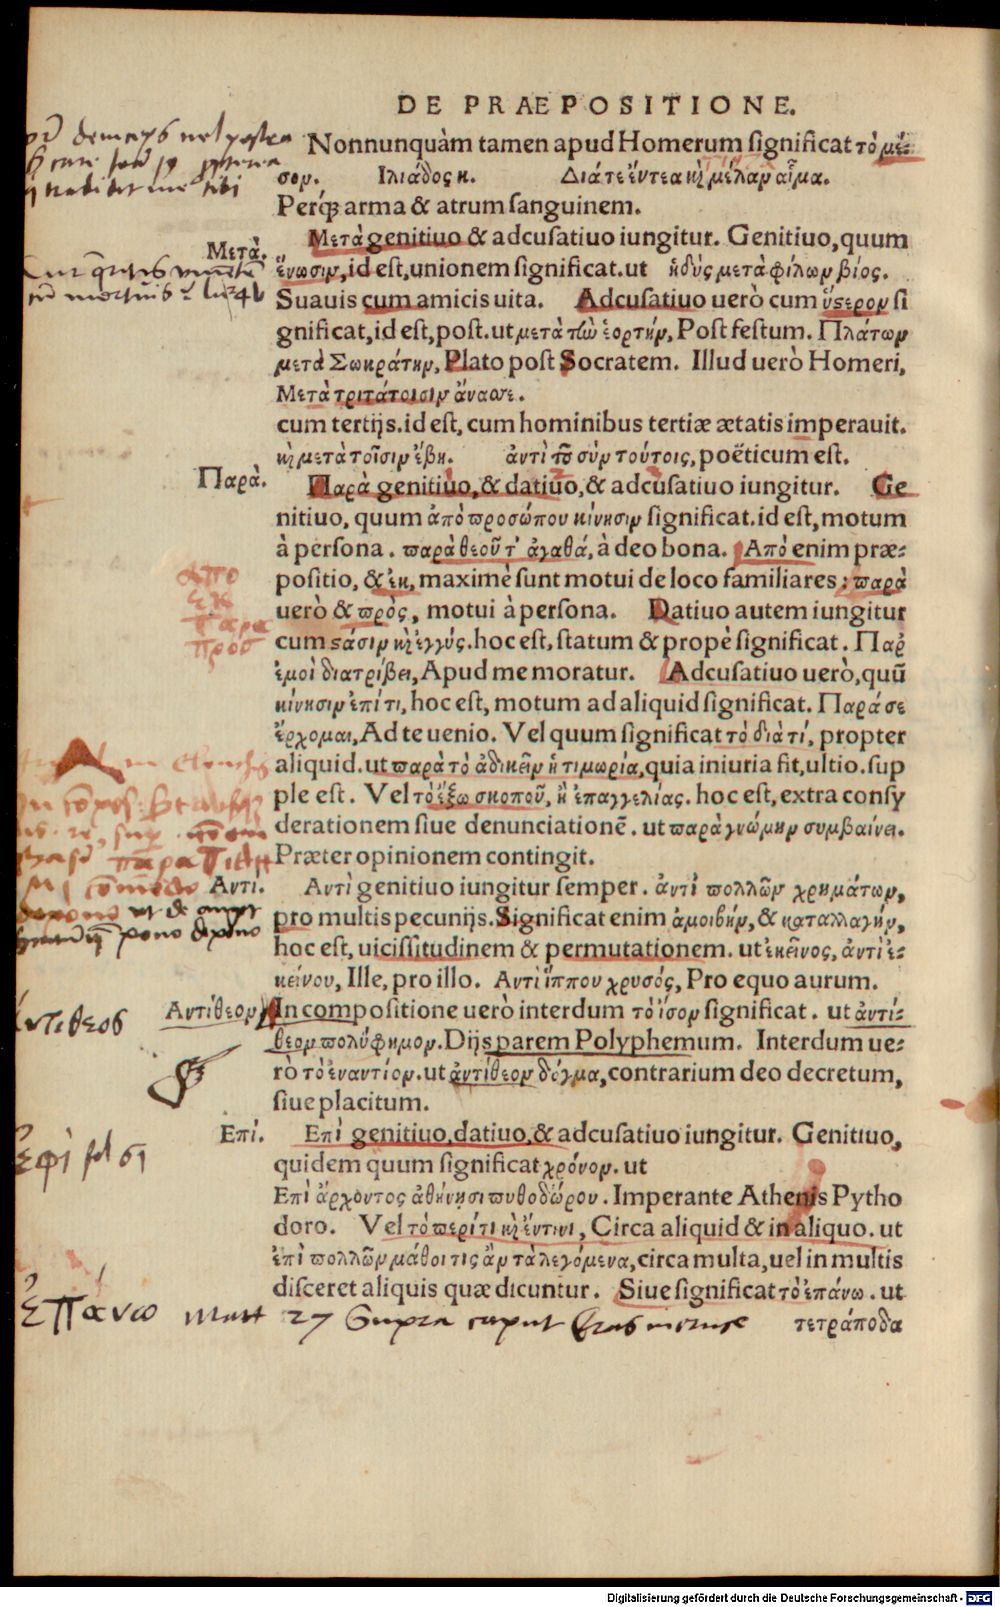 DE PRAEPOSITIONE.
Nonnunquàm tamen apud Homerum significat τὸ μέ-
σον. Ιλιάδος κ. Διά τε ἔντεα κὶ μέλαν αἷμα.
Perq; arma & atrum sanguinem.
Μετὰ.
Μετὰ genitiuo & adcusatiuo iungitur. Genitiuo, quum
ἕνωσιν, id est, unionem significat. ut ἡδὺς μετὰ φίλων βίος.
Suauis cum amicis uita. Adcusatiuo uerò cum ὕστερον si
gnificat, id est, post. ut μετὰ τὼ ἑορτήν, Post festum. Πλάτων
μετὰ Σωκράτην, Plato post Socratem. Illud uerò Homeri,
Μετὰ τριτάτοισιν ἄνασσε.
cum tertijs. id est, cum hominibus tertiæ ætatis imperauit.
κὶ μετὰ τοῖσιν ἔβη. ἀντὶ τοῦ σὺν τούτοις, poëticum est.
Παρὰ.
Παρὰ genitiuo, & datiuo, & adcusatiuo iungitur. Ge
nitiuo, quum ἀπὸ προσώπου κίνησιν significat. id est, motum
à persona. παρὰ θεοῦ τ' ἀγαθά, à deo bona. Ἀπὸ enim præ-
positio, & ἐκ, maximè sunt motui de loco familiares: παρὰ
απο
εκ
παρα
προσ
uerò & πρὸς, motui à persona. Datiuo autem iungitur
cum στάσιν κὶ ἐγγύς. hoc est, statum & propè significat. Παρ'
ἐμοὶ διατρίβει, Apud me moratur. Adcusatiuo uerò, quū
κίνησιν ἐπί τι, hoc est, motum ad aliquid significat. Παρά σε
ἔρχομαι, Ad te uenio. Vel quum significat τὸ διὰ τί, propter
aliquid. ut παρὰ τὸ ἀδικεῖν ἡ τιμωρία, quia iniuria fit, ultio. sup
ple est. Vel τὸ ἔξω σκοποῦ, ἢ ἐπαγγελίας. hoc est, extra consy
derationem siue denunciationē. ut παρὰ γνώμην συμβαίνει.
Præter opinionem contingit.
Αντι.
Αντὶ genitiuo iungitur semper. ἀντὶ πολλῶν χρημάτων,
pro multis pecunijs. Significat enim ἀμοιβήν, & καταλλαγήν,
hoc est, uicissitudinem & permutationem. ut ἐκεῖνος, ἀντὶ ἐ-
κείνου, Ille, pro illo. Αντὶ ἵππου χρυσός, Pro equo aurum.
Αντίθεον
In compositione uerò interdum τὸ ἴσον significat. ut ἀντί-
θεον πολύφημον. Dijs parem Polyphemum. Interdum ue-
rò τὸ ἐναντίον. ut ἀντίθεον δόγμα, contrarium deo decretum,
siue placitum.
Επί.
Επὶ genitiuo, datiuo, & adcusatiuo iungitur. Genitiuo,
quidem quum significat χρόνον. ut
Επὶ ἄρχοντος ἀθήνησι πυθοδώρου. Imperante Athenis Pytho
doro. Vel τὸ περί τι κὶ ἔν τινι, Circa aliquid & in aliquo. ut
ἐπὶ πολλῶν μάθοι τις ἂν τὰ λεγόμενα, circa multa, uel in multis
disceret aliquis quæ dicuntur. Siue significat τὸ ἐπάνω. ut
επανω Matt 27 Supra caput
τετράποδα
Digitalisierung gefördert durch die Deutsche Forschungsgemeinschaft - DFG